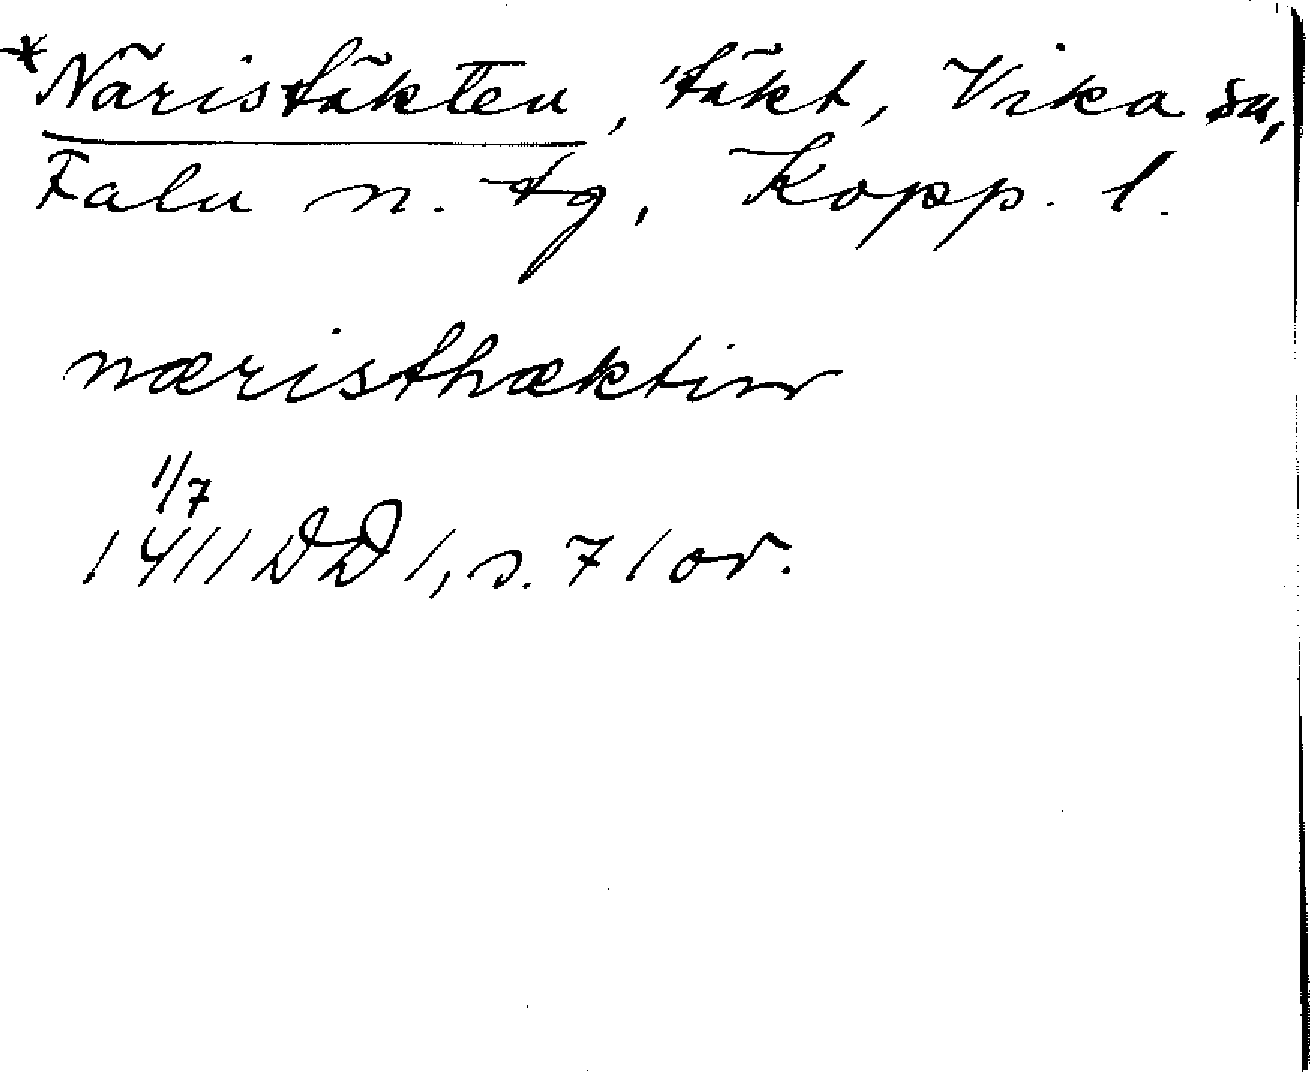 *Näristäkten, täkt, Vika sn,
Falu n. tg, Kopp. l.
næristhæktinr
1/7
1411 DD 1, s. 71 or.